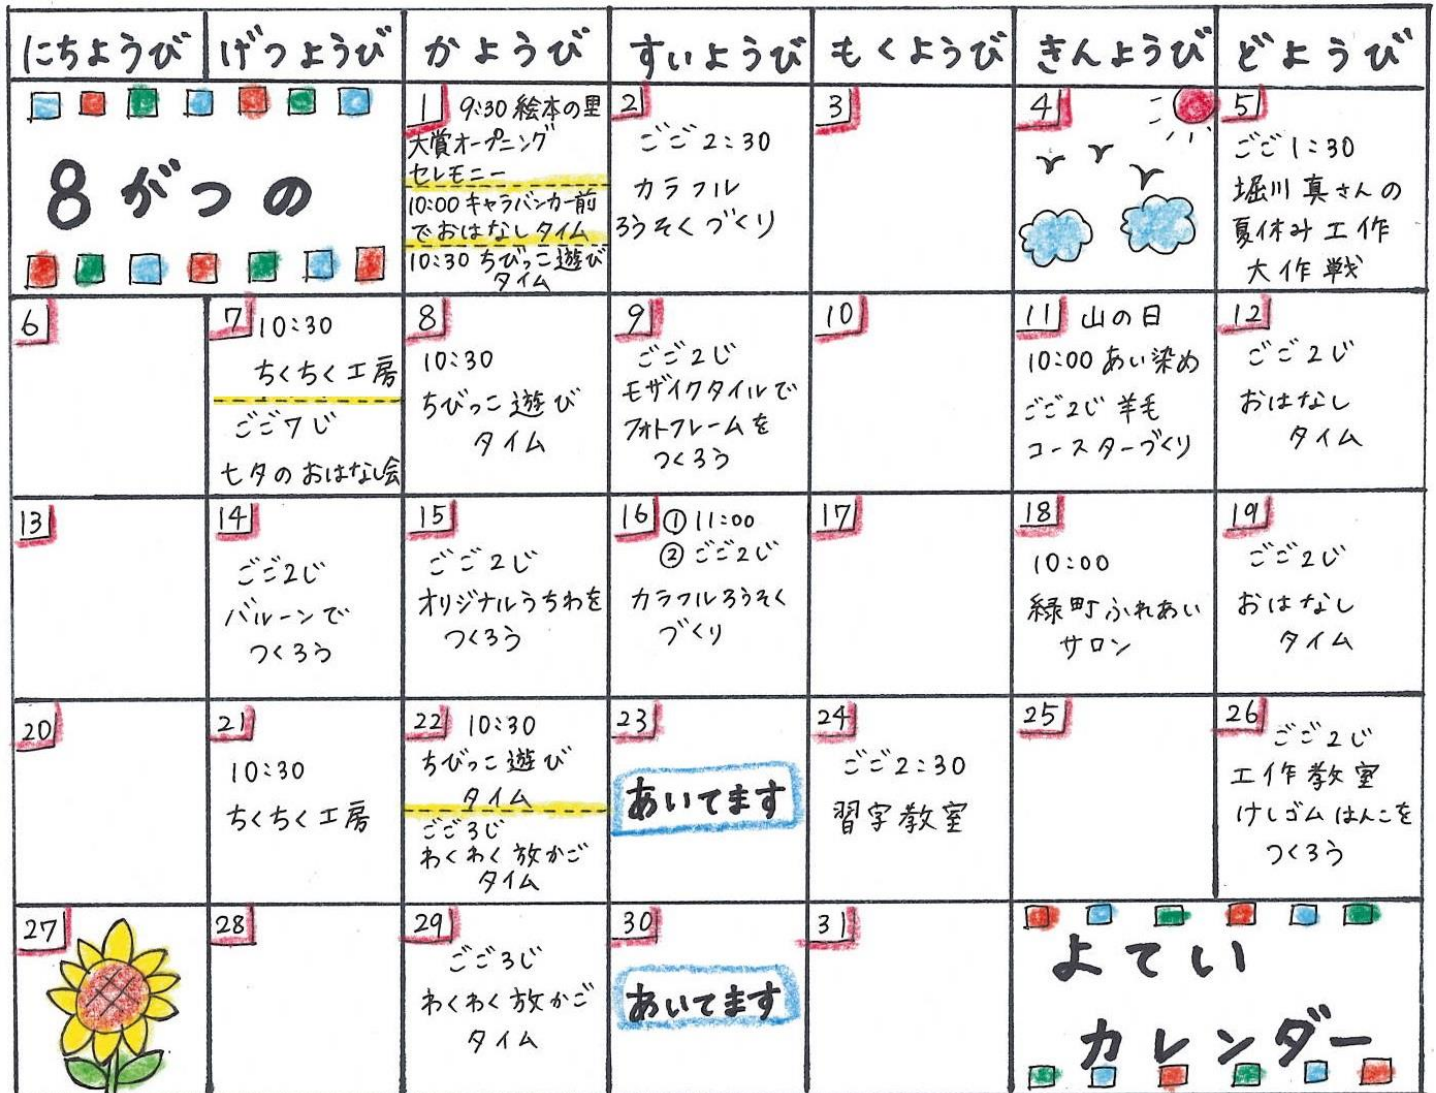 にちようび
げつようび
かようび
すいようび
もくようび
きんようび
どようび
8がつの
1 9:30 絵本の里
大賞オープニング
セレモニー
10:00 キャラバンカー前
でおはなしタイム
10:30 ちびっこ遊び
タイム
2
ごご2:30
カラフル
ろうそくづくり
3
4
5
ごご1:30
堀川真さんの
夏休み工作
大作戦
6
7 10:30
ちくちく工房
ごご7じ
七夕のおはなし会
8
10:30
ちびっこ遊び
タイム
9
ごご2じ
モザイクタイルで
フォトフレームを
つくろう
10
11 山の日
10:00 あい染め
ごご2じ 羊毛
コースターづくり
12
ごご2じ
おはなし
タイム
13
14
ごご2じ
バルーンで
つくろう
15
ごご2じ
オリジナルうちわを
つくろう
16 ① 11:00
② ごご2じ
カラフルろうそく
づくり
17
18
10:00
緑町ふれあい
サロン
19
ごご2じ
おはなし
タイム
20
21
10:30
ちくちく工房
22 10:30
ちびっこ遊び
タイム
ごご3じ
わくわく放かご
タイム
23
あいてます
24
ごご2:30
習字教室
25
26
ごご2じ
工作教室
けしゴムはんこを
つくろう
27
28
29
ごご3じ
わくわく放かご
タイム
30
あいてます
31
よてい
カレンダー